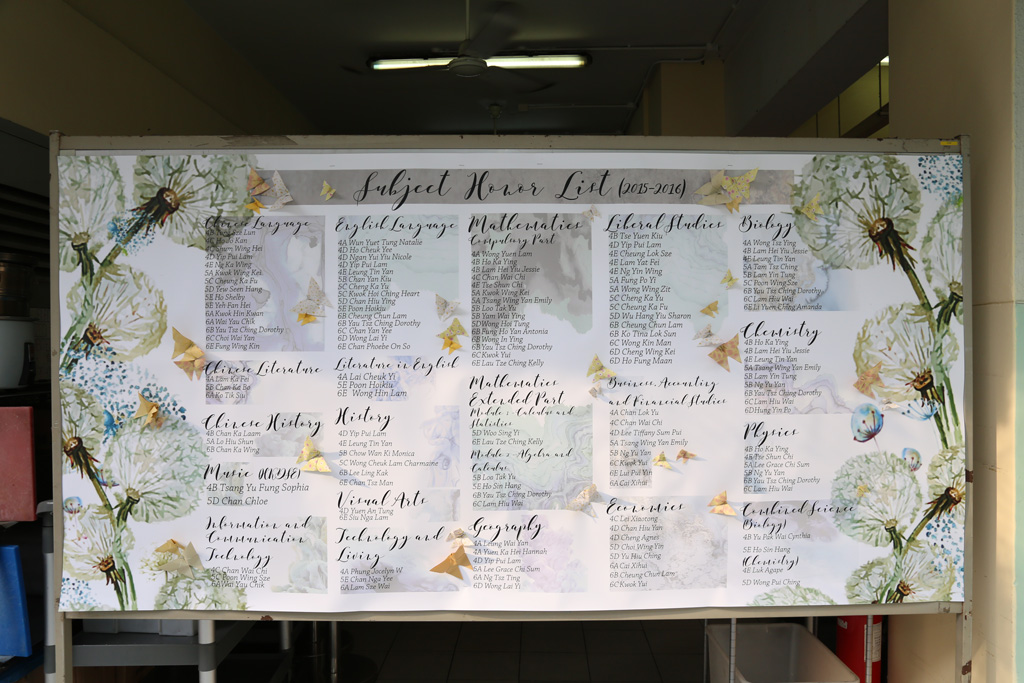 Subject Honor List (2015-2016)
Chinese Language
4D Yip Pui Lam
4E Ng Ka Wing
5A Kwok Wing Kei
5C Cheung Ka Fu
5D Yew Seen Hang
5E Ho Shelby
5E Yeh Fan Hei
6A Kwok Hin Kwan
6A Wai Yau Chik
6B Yau Tsz Ching Dorothy
6C Choi Wai Yan
6E Fung Wing Kin
Chinese Literature
4A Lam Ka Fei
5B Chan Ka Bo
6A Ko Tik Siu
Chinese History
4B Chan Ka Laam
5A Lo Hiu Shun
6B Chan Ka Wing
Music (HKDSE)
4B Tsang Yu Fung Sophia
5D Chan Chloe
Information and
Communication
Technology
4C Chan Wai Chi
5C Poon Wing Sze
6A Wai Yau Chik
English Language
4A Wun Yuet Tung Natalie
4D Ho Cheuk Yee
4D Ngan Yui Yiu Nicole
4D Yip Pui Lam
4E Leung Tin Yan
5B Chan Yan Kiu
5C Cheng Ka Yu
5C Kwok Hoi Ching Heart
5D Chan Hiu Ying
5E Poon Hoikiu
6B Cheung Chun Lam
6B Yau Tsz Ching Dorothy
6C Chan Yan Yee
6D Wong Lai Yi
6E Chan Phoebe On So
Literature in English
4A Lai Cheuk Yi
5E Poon Hoikiu
6E Wong Hin Lam
History
4D Yip Pui Lam
4E Leung Tin Yan
5B Chow Wan Ki Monica
5C Wong Cheuk Lam Charmaine
6B Lee Ling Kak
6E Chan Tsz Man
Visual Arts
4D Yuen An Tung
6E Siu Nga Lam
Technology and
Living
4A Phung Jocelyn W.
5E Chan Ngu Yee
6A Lam Sze Wai
Mathematics
Compulsory Part
4A Wong Yuen Lam
4B Ho Ka Ying
4B Lam Hei Yiu Jessie
4C Chan Wai Chi
4E Tse Shun Chi
5A Kwok Wing Kei
5A Tsang Wing Yan Emily
5B Loo Tak Yu
5B Yam Wai Ying
5D Wong Hoi Tung
6B Fung Ho Yan Antonia
6B Wong In Ying
6B Yau Tsz Ching Dorothy
6C Kwok Yui
6E Lau Tze Ching Kelly
Mathematics
Extended Part
Module 1 - Calculus and
Statistics
5D Woo Sing Yi
6E Lau Tze Ching Kelly
Module 2 - Algebra and
Calculus
5B Loo Tak Yu
5E Ho Sin Hang
6B Yau Tsz Ching Dorothy
6C Lam Hiu Wai
Geography
4A Leung Wai Yan
4A Yuen Ka Hei Hannah
4D Yip Pui Lam
5A Lee Grace Chi Sum
6A Ng Tsz Ting
6D Wong Lai Yi
Liberal Studies
4B Tse Yuen Kiu
4D Yip Pui Lam
4E Cheung Lok Sze
4E Lam Yat Fei
4E Ng Yin Wing
5A Fung Po Yi
5A Wong Wing Zit
5C Cheng Ka Yu
5C Cheung Ka Fu
5D Wu Hang Yiu Sharon
6B Cheung Chun Lam
6B Ko Tina Lok Sun
6C Wong Kin Man
6D Cheng Wing Kei
6D Ho Fung Maan
Business, Accounting
and Financial Studies
4A Chan Lok Yu
4C Chan Wai Chi
4D Lee Tiffany Sum Pui
5A Tsang Wing Yan Emily
6C Kwok Yui
6E Lui Pui Yin
6A Cai Xihui
Economics
4C Lei Xiaotong
4D Chan Hiu Yan
4D Cheng Agnes
5D Choi Wing Yin
5D Yu Hiu Ching
6A Cai Xihui
6B Cheung Chun Lam
6C Kwok Yui
Biology
4A Wong Tsz Ying
4B Lam Hei Yiu Jessie
4E Leung Tin Yan
5A Tam Tsz Ching
5B Lam Yin Tung
5C Poon Wing Sze
6B Yau Tsz Ching Dorothy
6C Lam Hiu Wai
6E Li Yuen Ching Amanda
Chemistry
4B Ho Ka Ying
4B Lam Hei Yiu Jessie
4E Leung Tin Yan
5A Tsang Wing Yan Emily
5B Lam Yin Tung
5B Ng Yu Yan
6B Yau Tsz Ching Dorothy
6C Lam Hiu Wai
6D Hung Yin Po
Physics
4B Ho Ka Ying
4B Tse Shun Chi
5A Lee Grace Chi Sum
5B Ng Yu Yan
6B Yau Tsz Ching Dorothy
6C Lam Hiu Wai
Combined Science
(Biology)
4B Yu Pak Wai Cynthia
5E Ho Sin Hang
(Chemistry)
4E Luk Agape
5D Wong Pui Ching